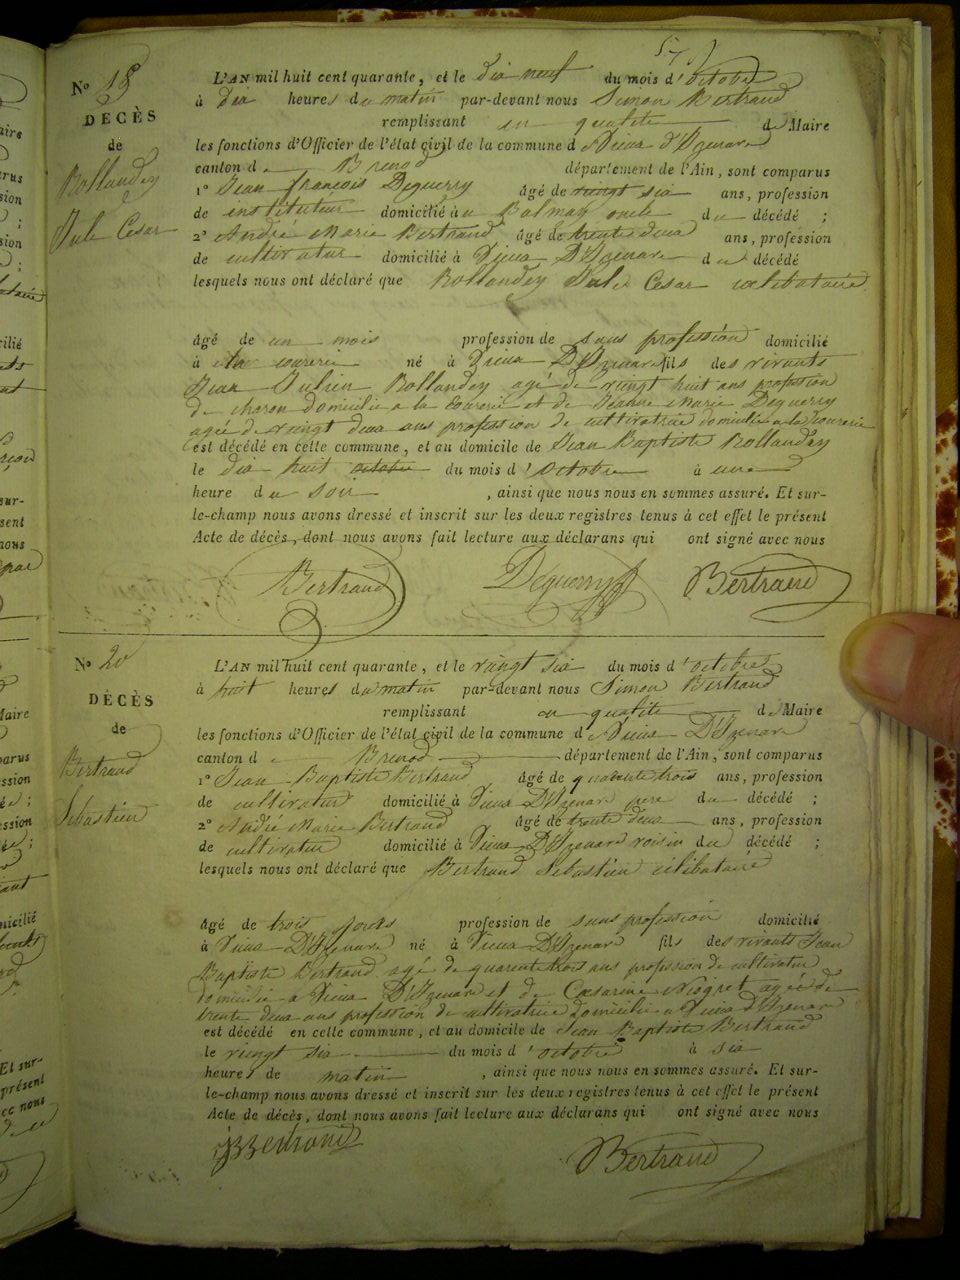 57
N° 19
DÉCÈS
de
Rollandey
Jule Cesar
L'AN mil huit cent quarante, et le dix neuf du mois d'octobre
à dix heures du matin par-devant nous Simon Bertrand
remplissant en qualité de Maire
les fonctions d'Officier de l'état civil de la commune d Vieux d'Izenave
canton d Brenod département de l'Ain, sont comparus
1° Jean françois Deguerry âgé de vingt six ans, profession
de instituteur domicilié à Balmay oncle du décédé ;
2° André Marie Bertrand âgé de trente deux ans, profession
de cultivateur domicilié à Vieux D'Izenave du décédé
lesquels nous ont déclaré que Rollandey Jule Cesar celibataire
âgé de un mois profession de sans profession domicilié
à la courerie né à Vieux D'Izenave fils des vivants
Jean Julien Rollandey agé de vingt huit ans profession
de charon domicilié a la Courerie et de Jeanne Marie Deguerry
agée de vingt deux ans profession de cultivatrice domicilié a la Courerie
est décédé en cette commune, et au domicile de Jean Baptiste Rollandey
le dix huit octobre du mois d'octobre à une
heure du soir , ainsi que nous nous en sommes assuré. Et sur-
le-champ nous avons dressé et inscrit sur les deux registres tenus à cet effet le présent
Acte de décès, dont nous avons fait lecture aux déclarans qui ont signé avec nous
Bertrand Deguerry Bertrand
N° 20
DÉCÈS
de
Bertrand
Sebastien
L'AN mil huit cent quarante, et le vingt six du mois d'octobre
à huit heures du matin par-devant nous Simon Bertrand
remplissant en qualité de Maire
les fonctions d'Officier de l'état civil de la commune de Vieux D'Izenave
canton d Brenod département de l'Ain, sont comparus
1° Jean Baptiste Bertrand âgé de quarente trois ans, profession
de cultivateur domicilié à Vieux D'Izenave pere du décédé ;
2° André Marie Bertrand âgé de trente deux ans, profession
de cultivateur domicilié à Vieux D'Izenave voisin du décédé ;
lesquels nous ont déclaré que Bertrand Sebastien célibataire
âgé de trois jours profession de sans profession domicilié
à Vieux D'Izenave né à Vieux D'Izenave fils des vivants Jean
Baptiste Bertrand agé de quarente trois ans profession de cultivateur
domicilié a Vieux D'Izenave et de Cesarine Niogret agée de
trente deux ans profession de cultivatrice domicilié a Vieux d'Izenave
est décédé en cette commune, et au domicile de Jean Baptiste Bertrand
le vingt six du mois d'octobre à six
heures de matin , ainsi que nous nous en sommes assuré. Et sur-
le-champ nous avons dressé et inscrit sur les deux registres tenus à cet effet le présent
Acte de décès, dont nous avons fait lecture aux déclarans qui ont signé avec nous
JB Bertrand Bertrand